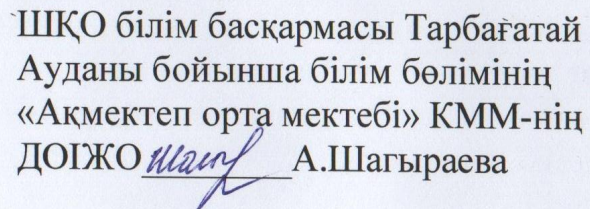 ШҚО білім басқармасы Тарбағатай
Ауданы бойынша білім бөлімінің
«Ақмектеп орта мектебі» КММ-нің
ДОІЖО__________А.Шагыраева